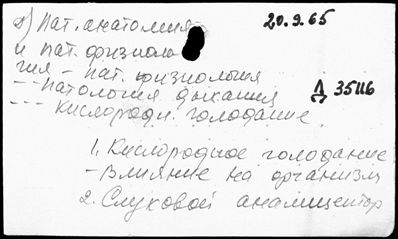 8) Пат. анатомия
20.9.65
и пат. физиоло
гия – пат. физиология
-- Патология дыхания
Д 35116
--- кислородн. голодание.
1. Кислородное голодание
– Влияние на организм
2. Слуховой анализатор